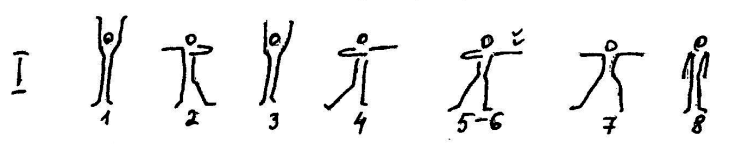 I
1 2 3 4 5-6 7 8